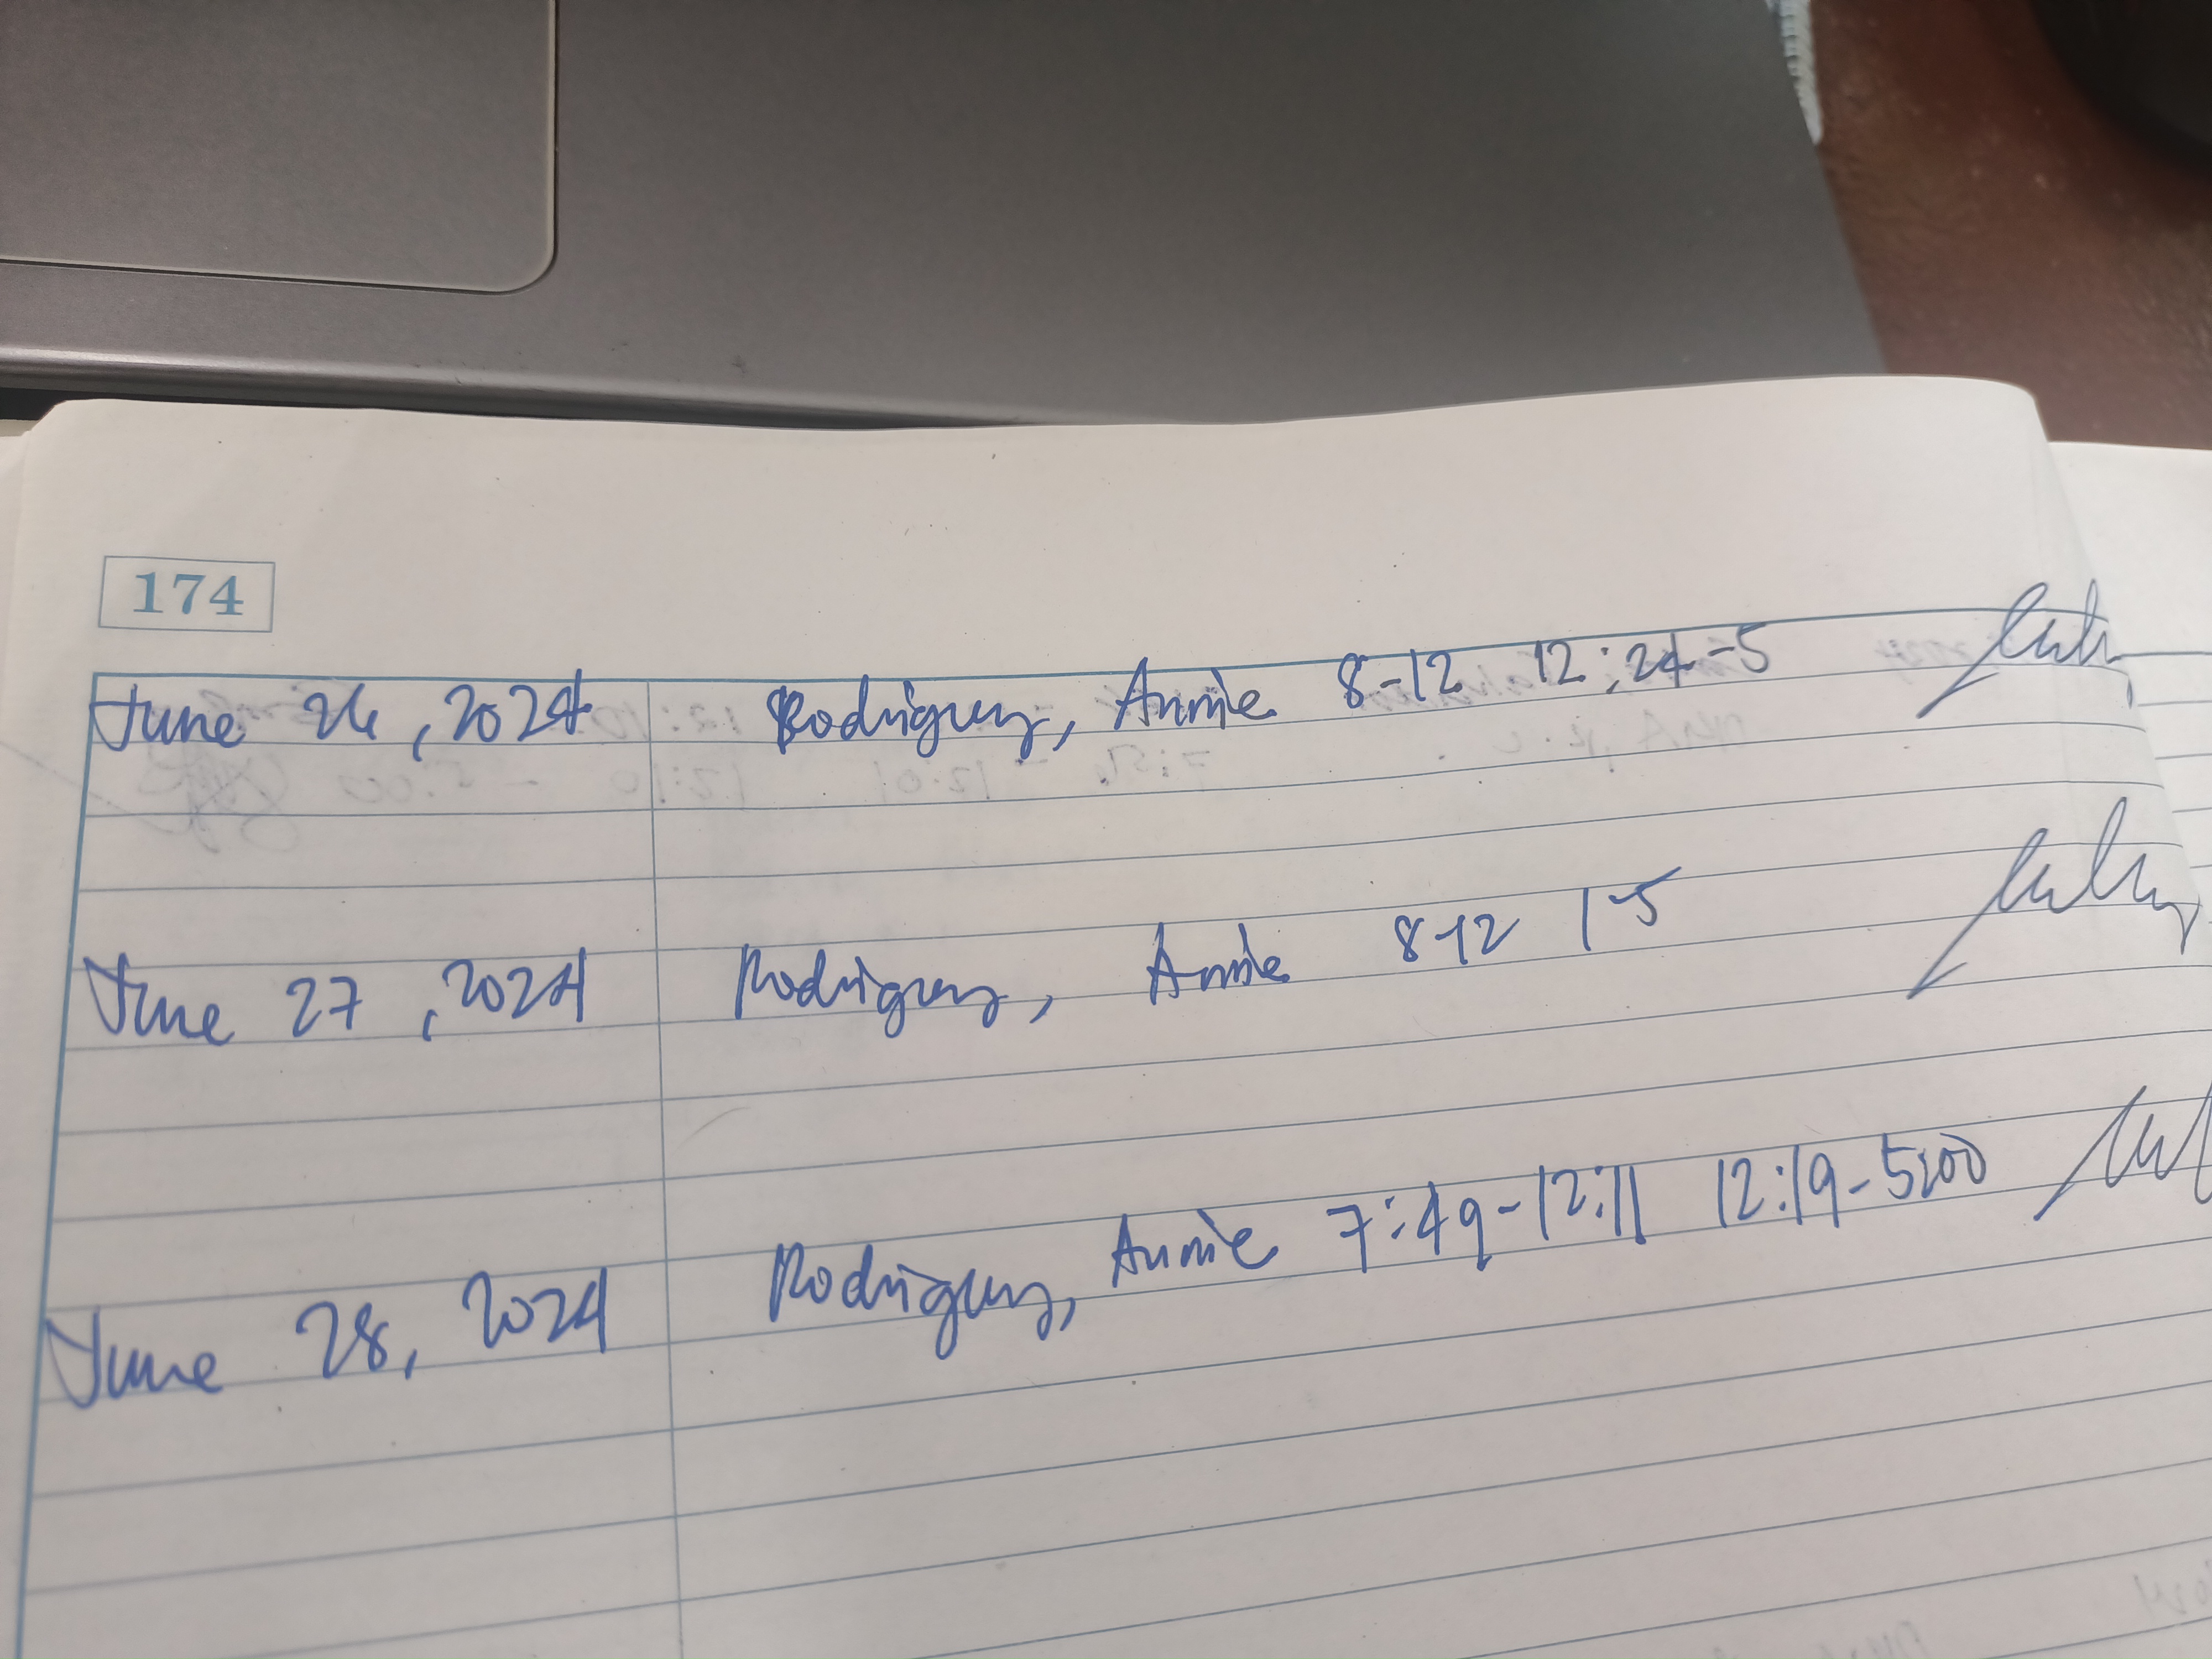 174
June 26, 2024 Rodriguez, Annie 8-12 12:24-5
June 27, 2024 Rodriguez, Annie 8-12 1-5
June 28, 2024 Rodriguez, Annie 7:49-12:11 12:19-5:00